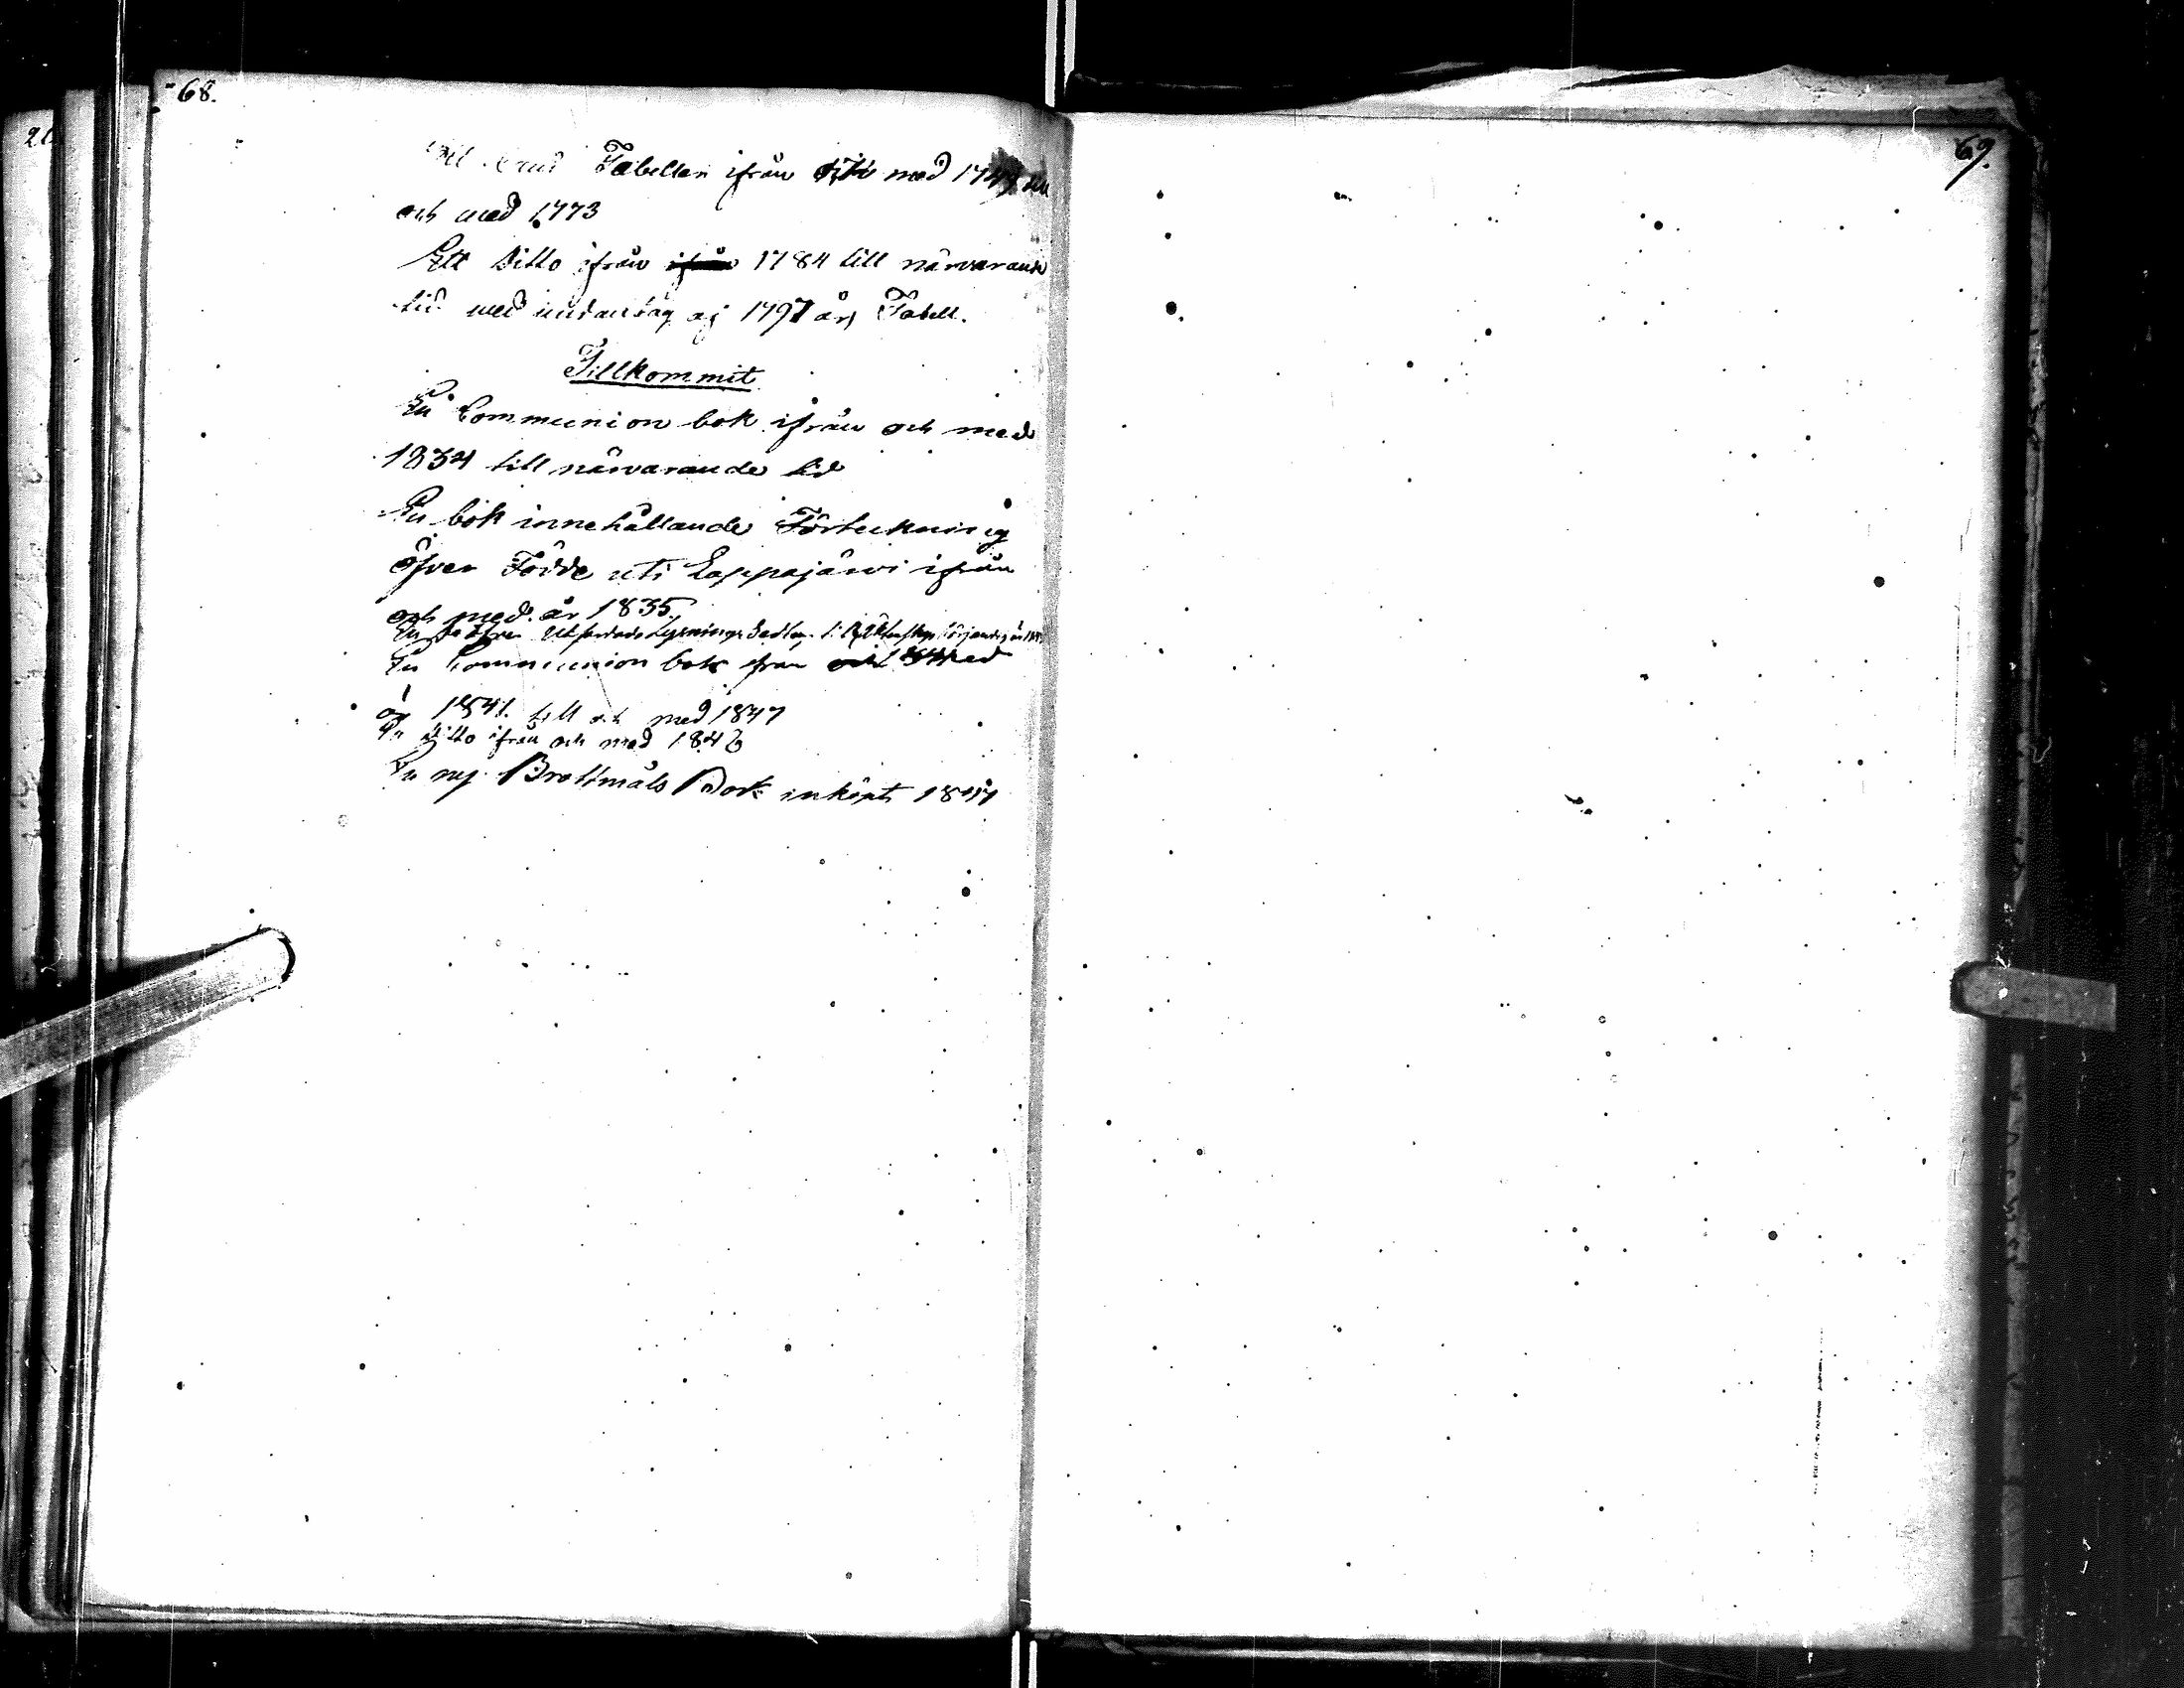 68.
Tabeller ifrån och med 1749 till
och med 1773
Ett Ditto ifrån ifrån 1784 till närvarande
tid med undantag af 1797 års Tabell.
Tillkommit
En Communion bok ifrån och med
1834 till närvarande tid
En bok innehållande Förteckning
öfver Födde uti Lappajärvi ifrån
och med år 1835.
En do öfver utfärdade Lysnings Sedlar
En Communion bok ifrån och med
år 1841. till och med 1847
En Ditto ifrån och med 1846
En ny Brottmåls Bok inköpt 1847
69.